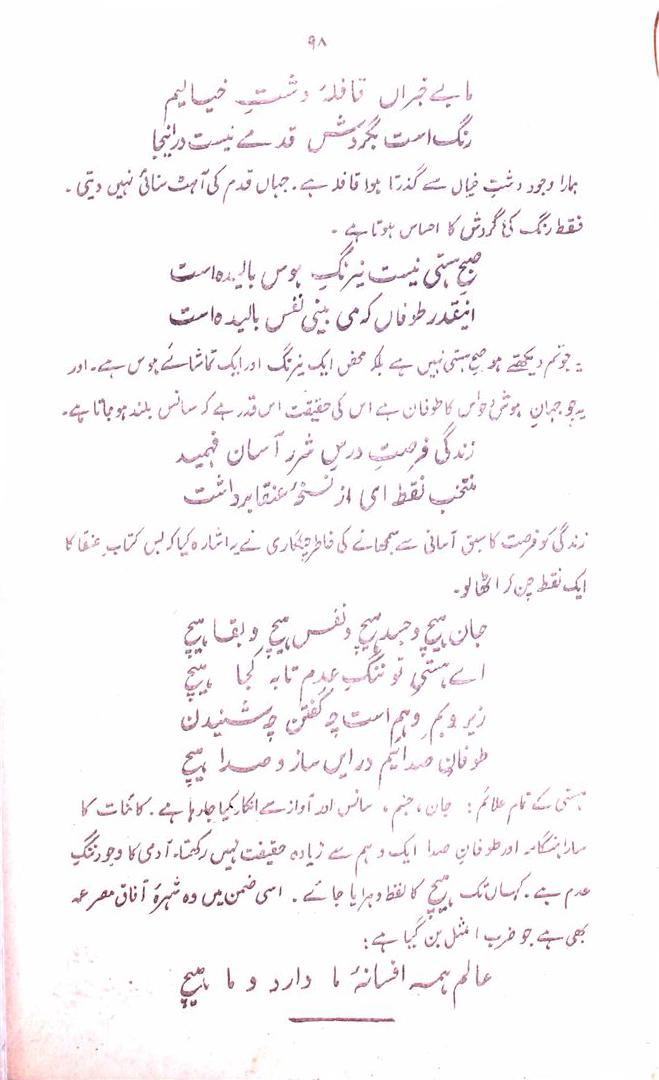 ۹۸
ما بے خبراں قافلۂ دشتِ خیالیم
رنگ است بگردش قدمے نیست درانیجا
ہمارا وجود دشتِ خیال سے گذرتا ہوا قافلہ ہے۔ جہاں قدم کی آہٹ سنائی نہیں دیتی۔
فقط رنگ کی گردش کا احساس ہوتا ہے۔
صبحِ ہستی نیست نیرنگِ ہوس بالیدہ است
اینقدر طوفاں کہ می بینی نفس بالیدہ است
یہ جو تم دیکھتے ہو صبحِ ہستی نہیں ہے بلکہ محض ایک نیرنگ اور ایک تماشائے ہوس ہے۔ اور
یہ جو جہانِ ہوش و حواس کا طوفان ہے اس کی حقیقت اس قدر ہے کہ سانس بلند ہو جاتا ہے۔
زندگی فرصتِ درسِ شرر آسان فہمید
منتخب نقطہ ای از نسخۂ عنقا برداشت
زندگی کو فرصت کا سبق آسانی سے سمجھانے کی خاطر چنگاری نے یہ اشارہ کیا کہ بس کتابِ عنقا کا
ایک نقطہ چن کر اٹھا لو۔
جان ہیچ و جسد ہیچ و نفس ہیچ و بقا ہیچ
اے ہستیِ تو ننگِ عدم تا بہ کجا ہیچ
زیر و بمِ وہم است چہ گفتن چہ شنیدن
طوفانِ صدائیم دراین ساز و صدا ہیچ
ہستی کے تمام علائم: جان، جسم، سانس اور آواز سے انکار کیا جا رہا ہے۔ کائنات کا
سارا ہنگامہ اور طوفانِ صدا ایک وہم سے زیادہ حقیقت نہیں رکھتا۔ آدمی کا وجود ننگِ
عدم ہے۔ کہاں تک ہیچ کا لفظ دہرایا جائے۔ اسی ضمن میں وہ شہرۂ آفاق مصرعہ
بھی ہے جو ضرب المثل بن گیا ہے:
عالم ہمہ افسانۂ ما دارد و ما ہیچ